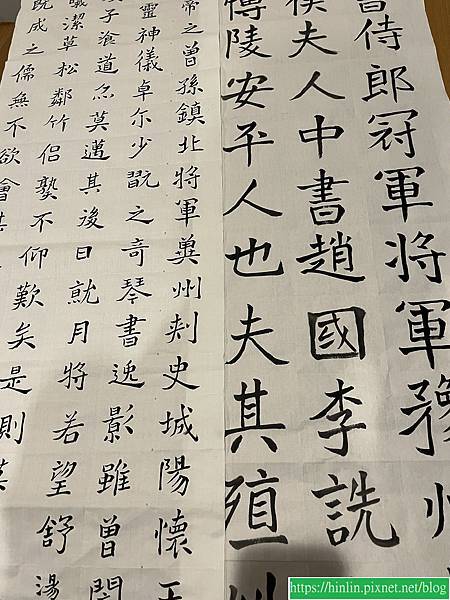 侍郎冠軍將軍豫州
侯夫人中書趙國李詵
博陵安平人也夫其殖
常之曾孫鎮北將軍冀州刺史城陽懷王
靈神儀卓尔少翫之奇琴書逸影雖曾閔
子飡道亦莫邁其後日就月將若望舒湯
曦潔草松鄰竹侶熟不仰歎矣是則
既成之儒無不欲會其
https://hinlin.pixnet.net/blog